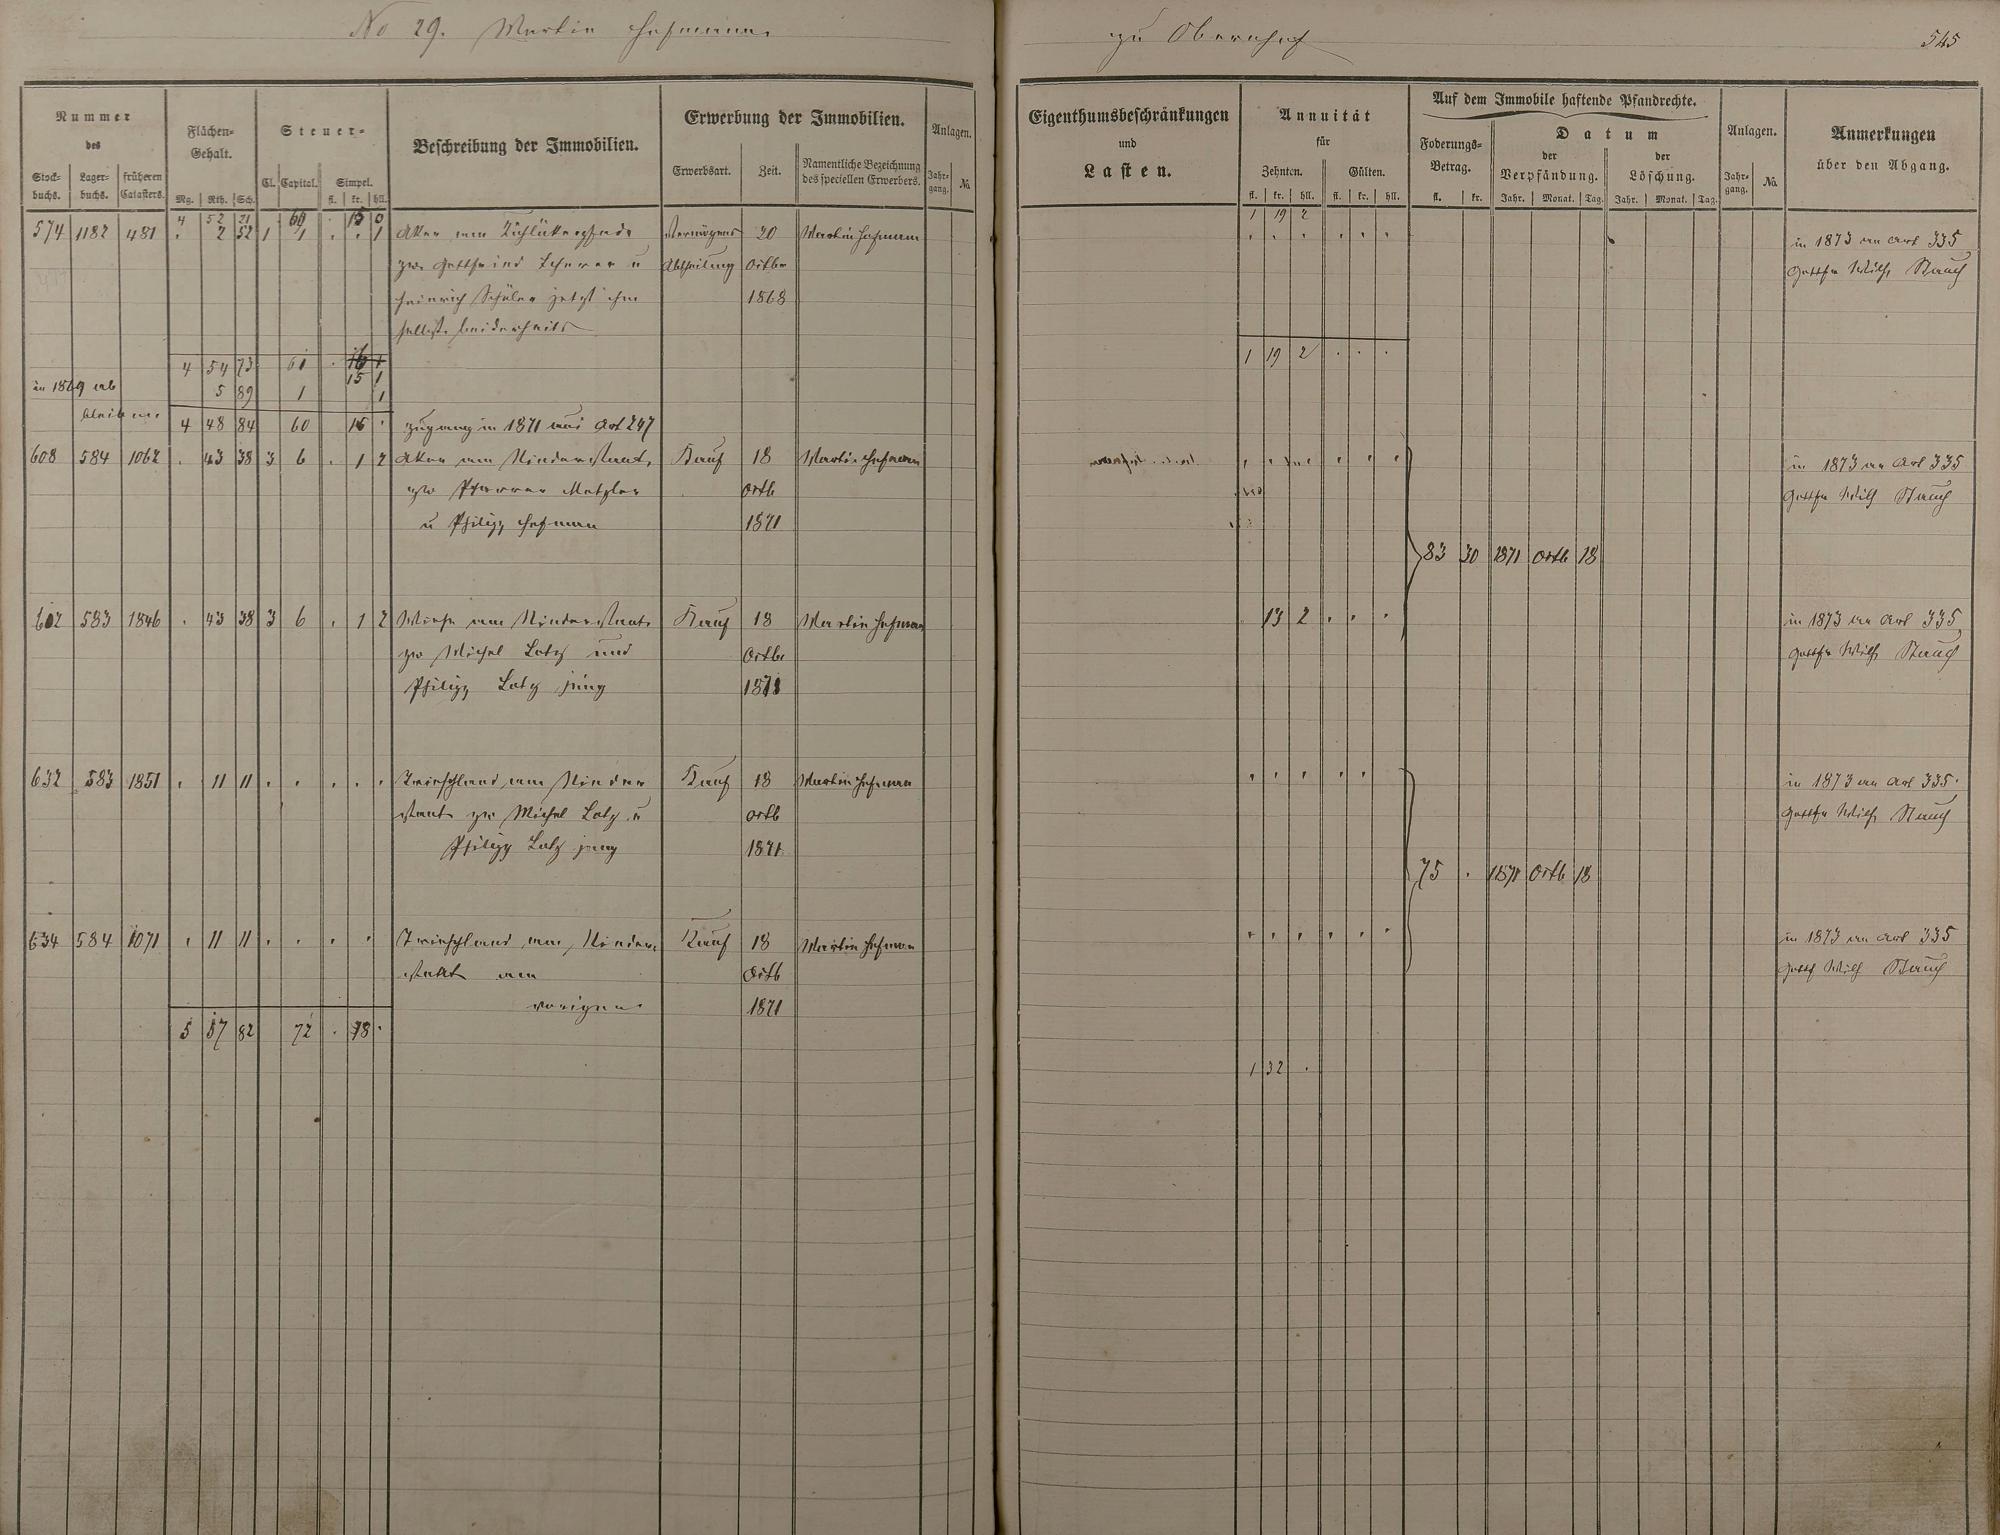 No 29. Martin Hofmann
zu Obernhof
545
Nummer
des
Stock-buchs. Lager-buchs. früheren Catasters.
Flächen-Gehalt.
Mg. Rth. Sch.
Steuer-
Cl. Capital. Simpel.
fl. kr. hll.
Beschreibung der Immobilien.
Erwerbung der Immobilien.
Erwerbsart. Zeit. Namentliche Bezeichnung des speciellen Erwerbers.
Anlagen.
Jahr-gang. No.
Eigenthumsbeschränkungen
und
Lasten.
Annuität
für
Zehnten. Gülten.
fl. kr. hll. fl. kr. hll.
Auf dem Immobile haftende Pfandrechte.
Foderungs-Betrag.
fl. kr.
Datum
der Verpfändung. der Löschung.
Jahr. Monat. Tag. Jahr. Monat. Tag.
Anlagen.
Jahr-gang. No.
Anmerkungen
über den Abgang.
4 52 21 60 15 0 1 19 2
574 1182 481 . 2 52 1 1 . . 1 Aker am Vermögens 20 Martin Hofmann in 1873 an Art 335
zw. Gottfried Scherer u Abtheilung Octbr Gottfr Wilh Stauch
Heinrich Schüler jetzt ihm 1868
selbst beiderseits
4 54 73 61 . 15 1 1 19 2 . . .
in 1869 ab 5 89 1 1
bleiben 4 48 84 60 . 15 . Zugang in 1871 aus Art 247
608 584 1062 . 43 38 3 6 . 1 2 Aker am Kauf 18 Martin Hofmann in 1873 an Art 335
zw Pfarrer Metzler Octb Gottfr Wilh Stauch
u Philipp Hofmann 1871
83 30 1871 Octb 18
602 583 1846 . 43 38 3 6 . 1 2 Wiese am Kauf 18 Martin Hofmann 13 2 . . . in 1873 an Art 335
zw Michel Lotz und Octbr Gottfr Wilh Stauch
Philipp Lotz jung 1871
632 583 1851 . 11 11 . . . . . am Kauf 18 Martin Hofmann in 1873 an Art 335.
zw Michel Lotz u Octb Gottfr Wilh Stauch
Philipp Lotz jung 1871
75 . 1871 Octb 18
634 584 1071 . 11 11 . . . . am Kauf 18 Martin Hofmann in 1873 an Art 335
am Octb Gottf Wilh Stauch
vorigen 1871
5 57 82 72 . 18 .
1 32 .